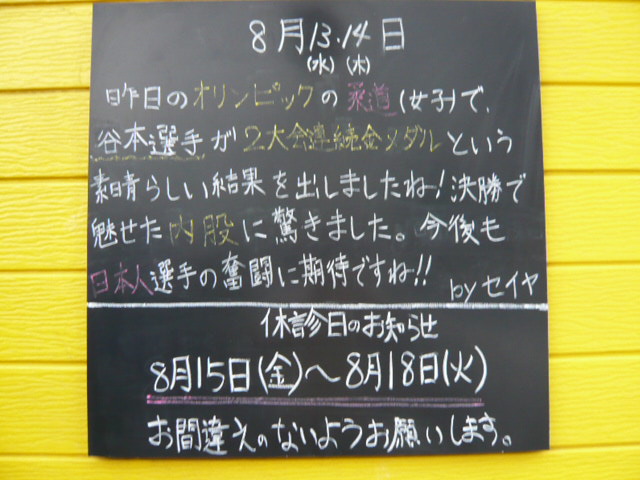 8月13.14日
(水)(木)
昨日のオリンピックの柔道(女子)で、
谷本選手が2大会連続金メダルという
素晴らしい結果を出しましたね!決勝で
魅せた内股に驚きました。今後も
日本人選手の奮闘に期待ですね!! byセイヤ
休診日のお知らせ
8月15日(金)〜8月18日(火)
お間違えのないようお願いします。